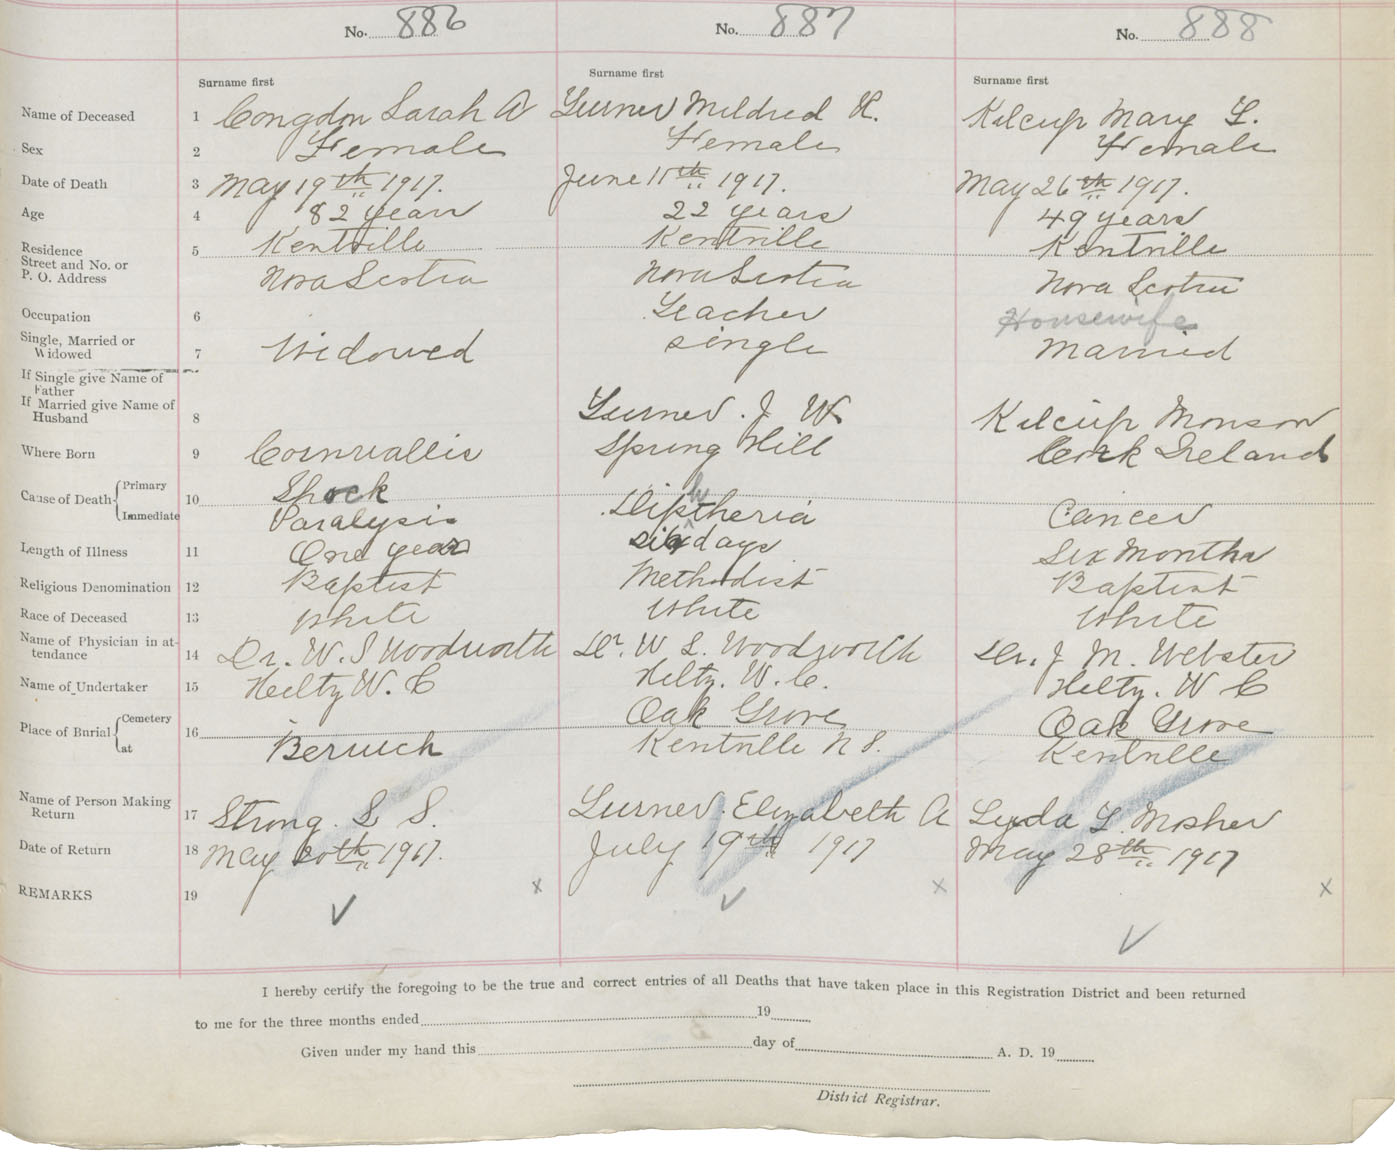 No. 886 No. 887 No. 888
Surname first Surname first Surname first
Name of Deceased 1 Congdon Sarah A Turner Mildred K. Kilcup Mary L.
Sex 2 Female Female Female
Date of Death 3 May 19th 1917. June 11th 1917. May 26th 1917.
Age 4 82 years 22 years 49 years
Residence Street and No. or P. O. Address 5 Kentville Kentville Kentville
Nova Scotia Nova Scotia Nova Scotia
Occupation 6 Teacher Housewife
Single, Married or Widowed 7 Widowed single Married
If Single give Name of Father
If Married give Name of Husband 8 Turner. J W. Kilcup Monson
Where Born 9 Cornwallis Spring Hill Cork Ireland
Cause of Death { Primary 10 Shock Diphtheria Cancer
Immediate Paralysis
Length of Illness 11 One year six days Six Months
Religious Denomination 12 Baptist Methodist Baptist
Race of Deceased 13 White White White
Name of Physician in attendance 14 Dr. W. S Woodworth Dr. W S. Woodworth Dr. J M. Webster
Name of Undertaker 15 Hiltz W. C Hiltz. W. C. Hiltz. W C
Place of Burial { Cemetery 16 Oak Grove Oak Grove
at Berwick Kentville N S. Kentville
Name of Person Making Return 17 Strong. S S. Turner. Elizabeth A Lyda L. Mosher
Date of Return 18 May 20th 1917. July 19th 1917 May 28th 1917
REMARKS 19 x x x
I hereby certify the foregoing to be the true and correct entries of all Deaths that have taken place in this Registration District and been returned
to me for the three months ended 19
Given under my hand this day of A. D. 19
District Registrar.